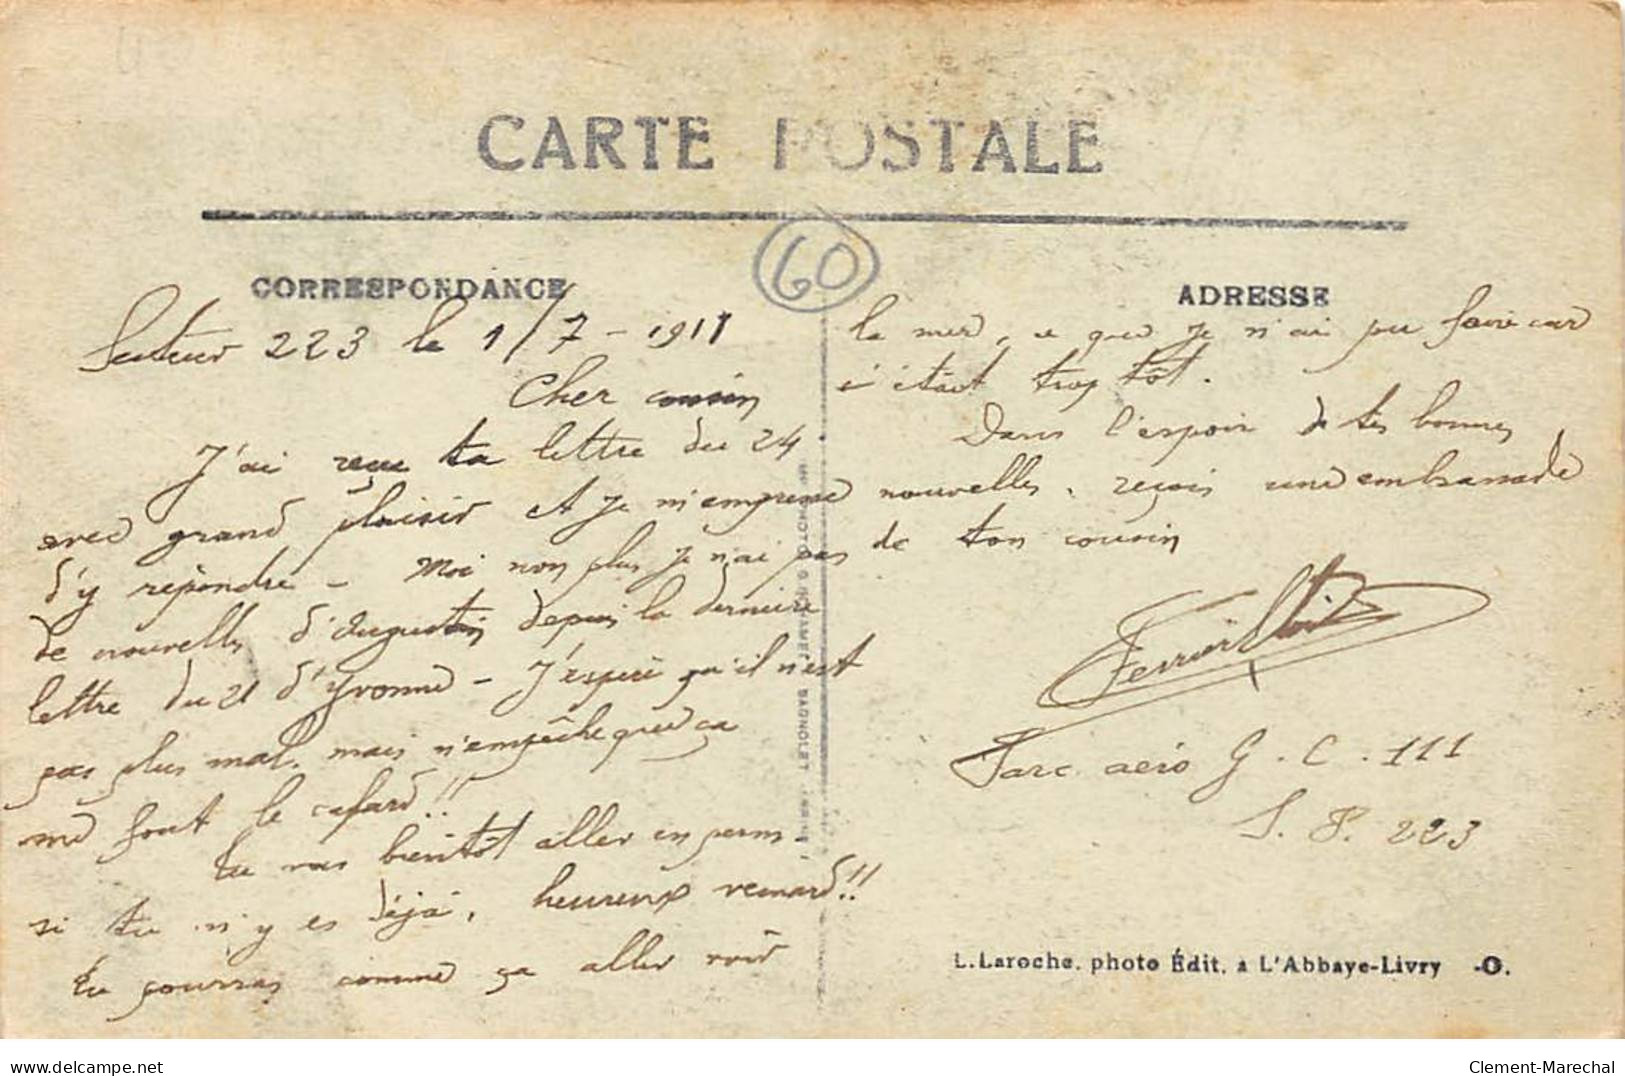 CARTE POSTALE
CORRESPONDANCE
60
ADRESSE
Secteur 223 le 1/7-1911
Cher cousin
J'ai reçu ta lettre du 24
avec grand plaisir et je m'empresse
d'y répondre - Moi non plus je n'ai pas
de nouvelles d'Augustin depuis la dernière
lettre du 21 d'Yvonne - J'espère qu'il n'est
pas plus mal, mais n'empêche que ça
me fout le cafard!!
Tu vas bientôt aller en perm.
si tu n'y es déjà, heureux renard!!
tu pourras comme ça aller voir
la mer, ce que je n'ai pu faire car
c'était trop tôt.
Dans l'espoir de tes bonnes
nouvelles, reçois une embrassade
de ton cousin
Parc aéro G.C. 111
S.P. 223
BAGNOLET
L.Laroche. photo Édit. a L'Abbaye-Livry -O.
delcampe.net
Clement-Marechal